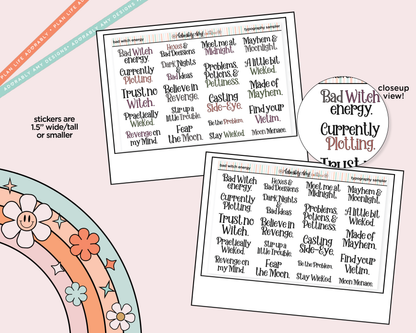 PLAN LIFE ADORABLY • PLAN LIFE
ADORABLY AMY DESIGNS! ADORABLY AMY DESIGNS!
stickers are
1.5" wide/tall
or smaller
bad witch energy
typography sampler
Bad Witch
energy.
Hexes &
Bad Decisions
Meet me at
Midnight.
Mayhem &
Moonlight.
Currently
Plotting.
Dark Nights
&
Bad Ideas
Problems,
Potions, &
Pettiness.
A little bit
Wicked.
Trust no
Witch.
Believe in
Revenge.
Casting
Side-Eye.
Made of
Mayhem.
Practically
Wicked.
Stir up a
little Trouble.
Be the Problem.
Find your
Victim.
Revenge on
my Mind.
Fear
the Moon.
Stay Wicked
Moon Menace.
closeup
view!
Bad Witch
energy.
Currently
Plotting.
Trust n
bad witch energy
typography sampler
Bad Witch
energy.
Hexes &
Bad Decisions
Meet me at
Midnight.
Mayhem &
Moonlight.
Currently
Plotting.
Dark Nights
&
Bad Ideas
Problems,
Potions, &
Pettiness.
A little bit
Wicked.
Trust no
Witch.
Believe in
Revenge.
Casting
Side-Eye.
Made of
Mayhem.
Practically
Wicked.
Stir up a
little Trouble.
Be the Problem.
Find your
Victim.
Revenge on
my Mind.
Fear
the Moon.
Stay Wicked
Moon Menace.